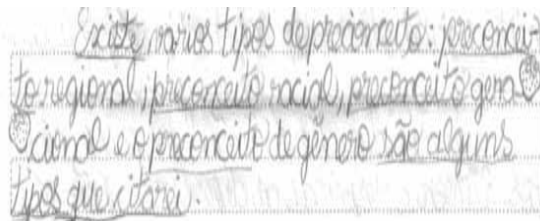 Existe varios tipos de preconceito: preconcei-
to regional, preconceito racial, preconceito gera
cional e o preconceito de gênero são alguns
tipos que citarei.